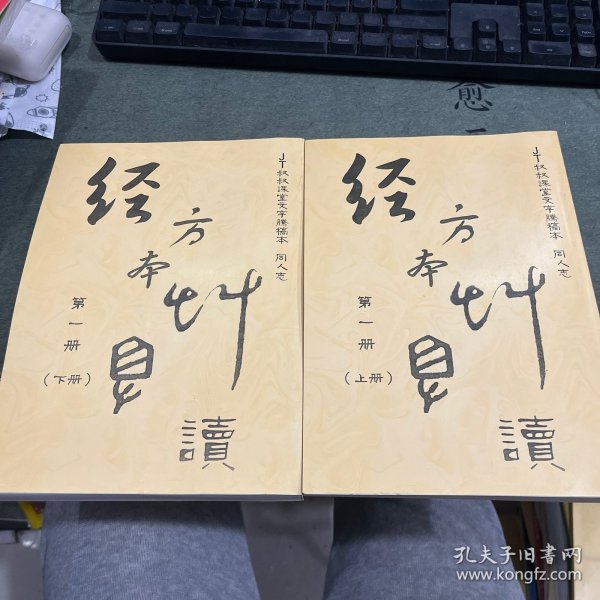 愈
JT叔叔课堂文字腾稿本 同人志
经
方
本
艸
具
讀
第一册
(下册)
JT叔叔课堂文字腾稿本 同人志
经
方
本
艸
具
讀
第一册
(上册)
孔夫子旧书网
www.kongfz.com